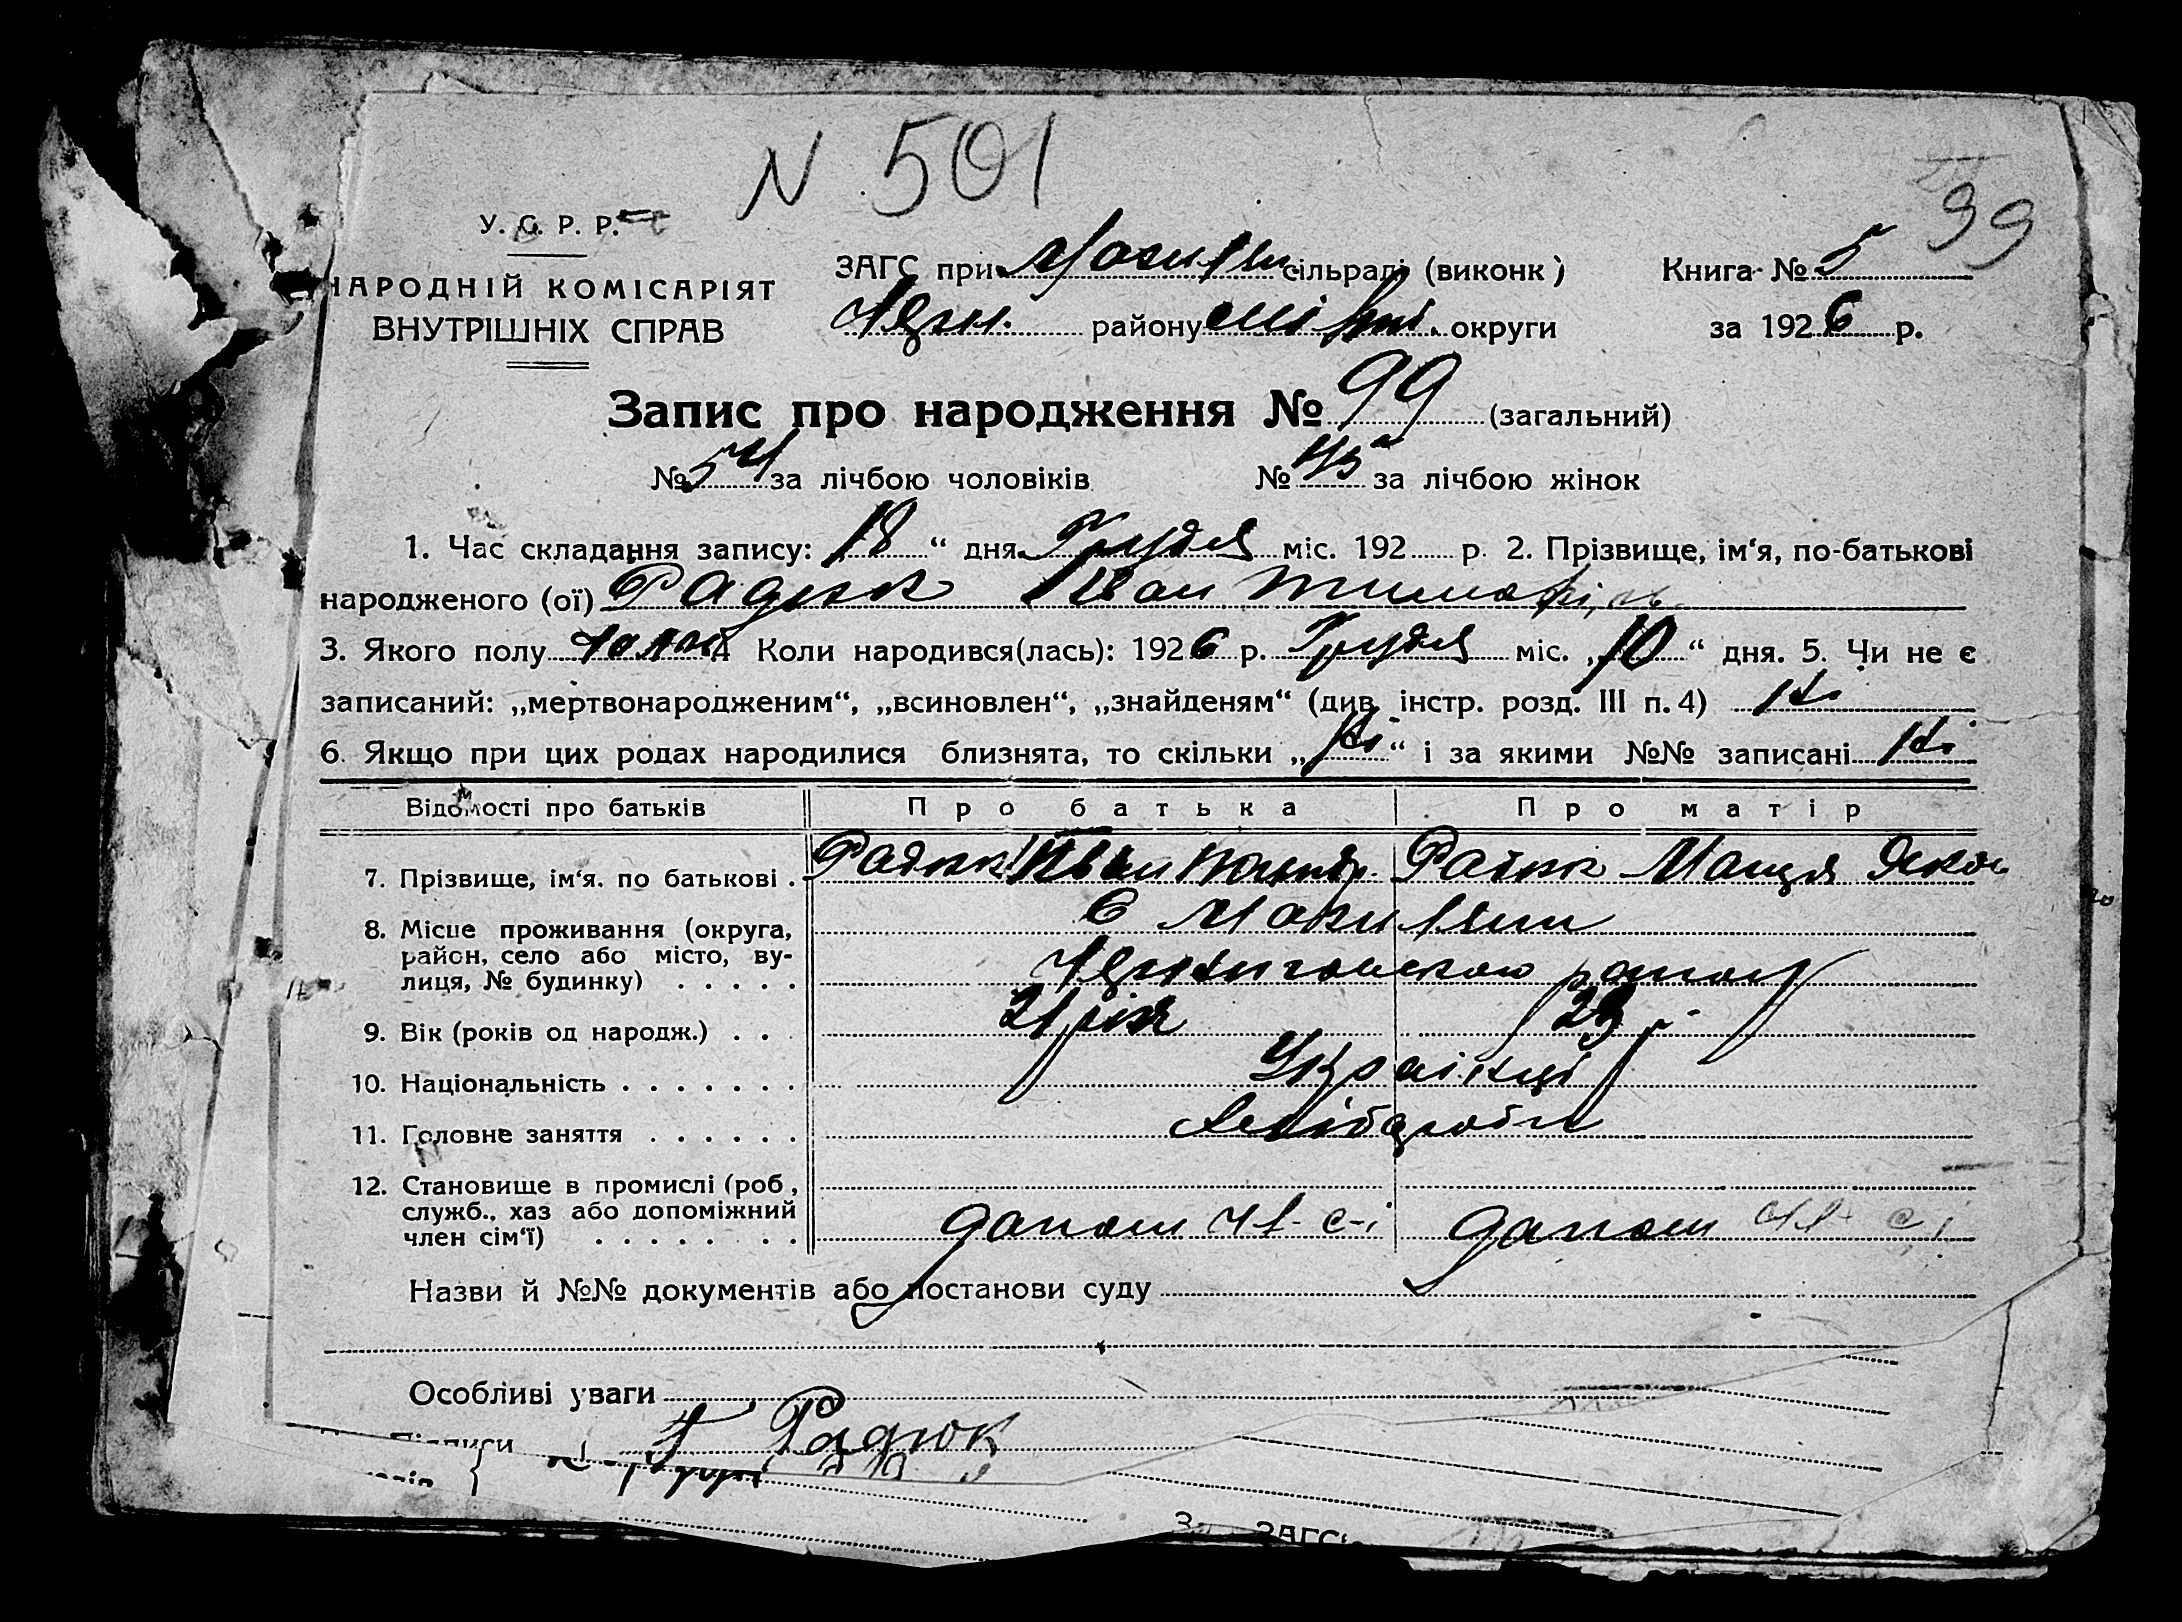 N 501
99
У. С. Р. Р.
НАРОДНІЙ КОМІСАРІЯТ
ВНУТРІШНІХ СПРАВ
ЗАГС при сільраді (виконк)
району округи
Книга № 5
за 1926 р.
Запис про народження № 99 (загальний)
№ 54 за лічбою чоловіків № 45 за лічбою жінок
1. Час складання запису: 18 “ дня Грудня міс. 192 р. 2. Прізвище, ім‘я, по-батькові
народженого (ої) Радюк Іван
3. Якого полу чолов 4 Коли народився(лась): 1926 р. Грудня міс. „10“ дня. 5. Чи не є
записаний: „мертвонародженим“, „всиновлен“, „знайденям“ (див. інстр. розд. III п. 4) Ні
6. Якщо при цих родах народилися близнята, то скільки „Ні“ і за якими №№ записані Ні
Відомості про батьків Про батька Про матір
7. Прізвище, ім‘я. по батькові . Радюк Радюк
8. Місце проживання (округа,
район, село або місто, ву-
лиця, № будинку) . . . . .
9. Вік (років од народж.) . . . 21 рік 23 р.
10. Національність . . . . . . . Українці
11. Головне заняття . . . . . . Хлібороби
12. Становище в промислі (роб.,
служб., хаз або допоміжний
член сім‘ї) . . . . . . . . допом чл. с-ї допом чл. с-ї
Назви й №№ документів або постанови суду
Особливі уваги
Підписи Радюк
ЗАГС